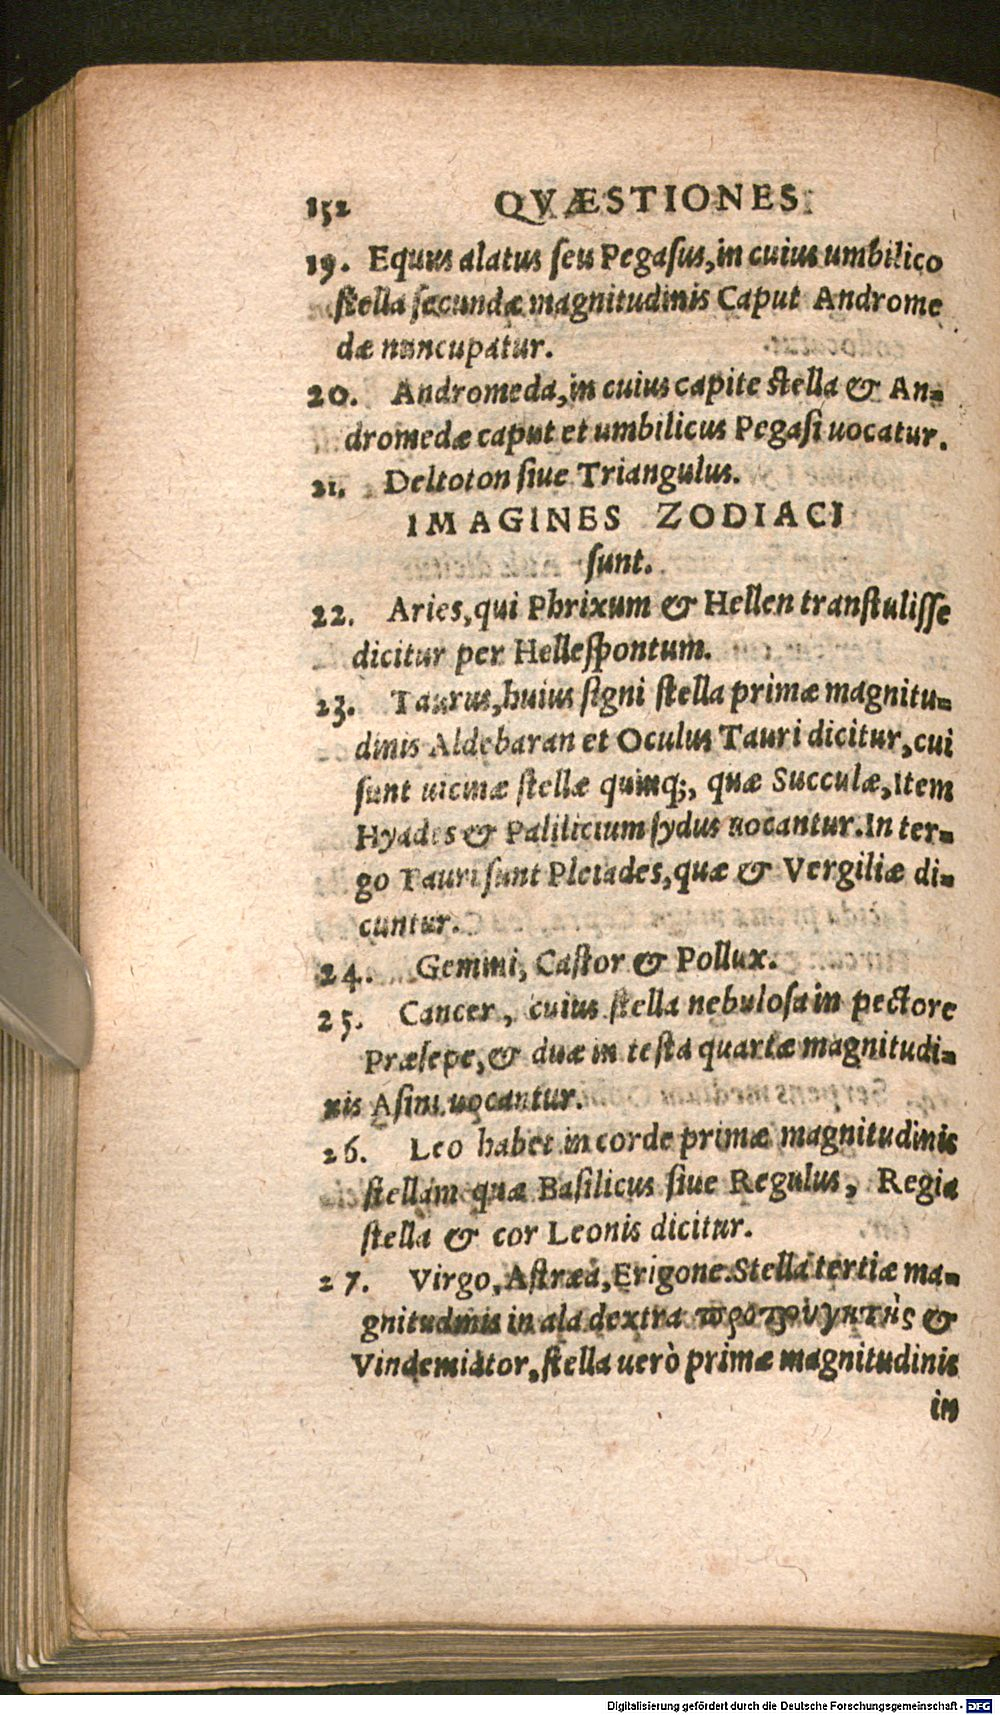 152 QVÆSTIONES
19. Equus alatus seu Pegasus, in cuius umbilico
stella secundæ magnitudinis Caput Androme
dæ nuncupatur.
20. Andromeda, in cuius capite stella & An-
dromedæ caput et umbilicus Pegasi uocatur.
21. Deltoton siue Triangulus.
IMAGINES ZODIACI
sunt.
22. Aries, qui Phrixum & Hellen transtulisse
dicitur per Hellespontum.
23. Taurus, huius signi stella primæ magnitu-
dinis Aldebaran et Oculus Tauri dicitur, cui
sunt uicinæ stellæ quinq;, quæ Succulæ, Item
Hyades & Palilicium sydus uocantur. In ter-
go Tauri sunt Pleiades, quæ & Vergiliæ di-
cuntur.
24. Gemini, Castor & Pollux.
25. Cancer, cuius stella nebulosa in pectore
Præsepe, & duæ in testa quartæ magnitudi-
nis Asini uocantur.
26. Leo habet in corde primæ magnitudinis
stellam quæ Basilicus siue Regulus, Regia
stella & cor Leonis dicitur.
27. Virgo, Astræa, Erigone. Stella tertiæ ma-
gnitudinis in ala dextra προτρυγητὴς &
Vindemiator, stella uerò primæ magnitudinis
in
Digitalisierung gefördert durch die Deutsche Forschungsgemeinschaft - DFG